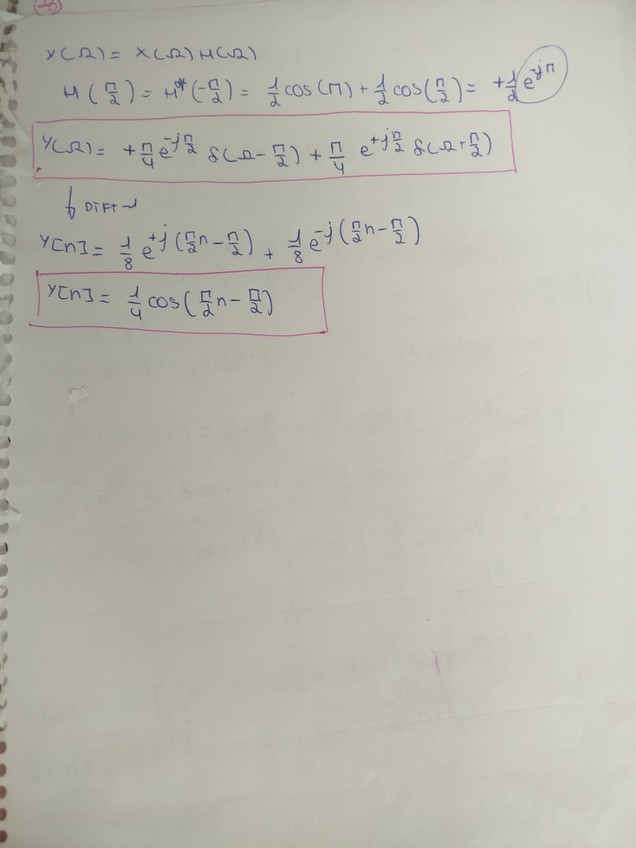 Y(Ω) = X(Ω) H(Ω)
H(π/2) = H*(-π/2) = 1/2 cos(π) + 1/2 cos(π/2) = +1/2 e^-jπ
Y(Ω) = +π/4 e^-jπ/2 δ(Ω - π/2) + π/4 e^+jπ/2 δ(Ω + π/2)
DTFT-1
Y[n] = 1/8 e^+j(π/2 n - π/2) + 1/8 e^-j(π/2 n - π/2)
Y[n] = 1/4 cos(π/2 n - π/2)